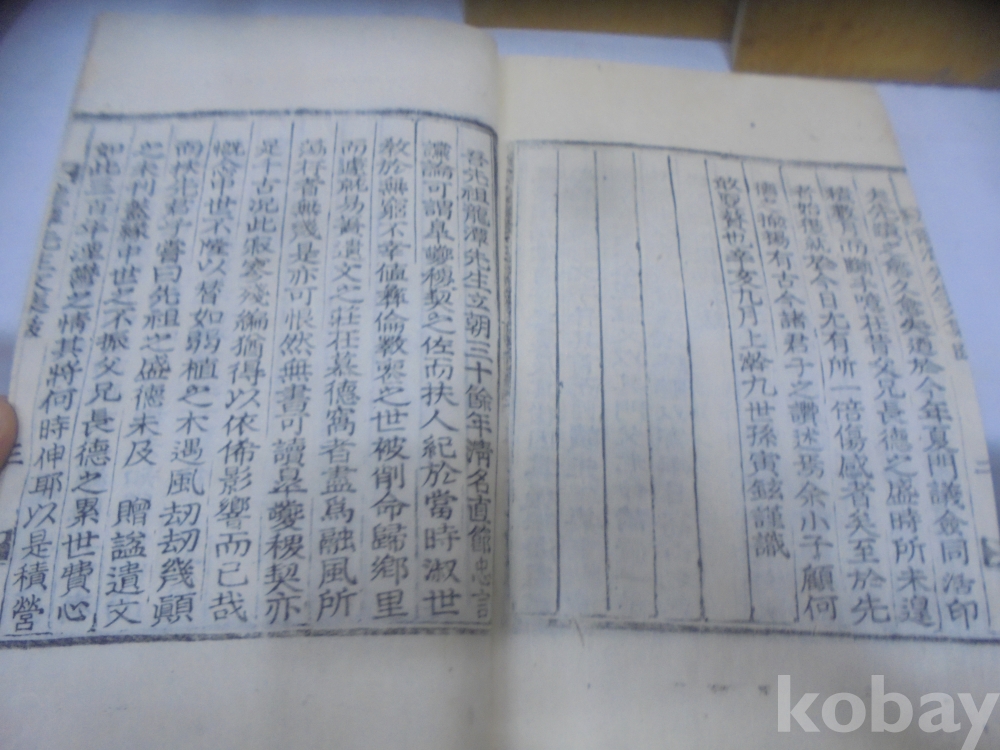 之愈久愈失遵於今年夏門議僉同活印
積數月而斷手噫在昔父兄長德之盛時所未遑
者始就於今日尤有所一倍傷感者矣至於先
德之揄揚有古今諸君子之讚述焉余小子顧何
敢更贅也辛亥九月上澣九世孫寅鉉謹識
吾先祖龍潭先生立朝三十餘年清名直節忠言
讜論可謂皐夔稷契之佐而扶人紀於當時淑世
敎於無窮不幸値彝倫斁喪之世被削命歸鄉里
而遽就易簀遺文之莊在慕德窩者盡爲融風所
蕩行者無幾是亦可恨然無書可讀皐夔稷契亦
是千古況此寂寥殘編猶得以依俙影響而已哉
慨念中世不隆以替如弱植之木遇風刧刧幾顚
而君子嘗曰先祖之盛德未及 贈謚遺文
之未刊蓋緣中世之不振父兄長德之累世費心
如此三百年湮鬱之情其將何時伸耶以是積營
三
kobay